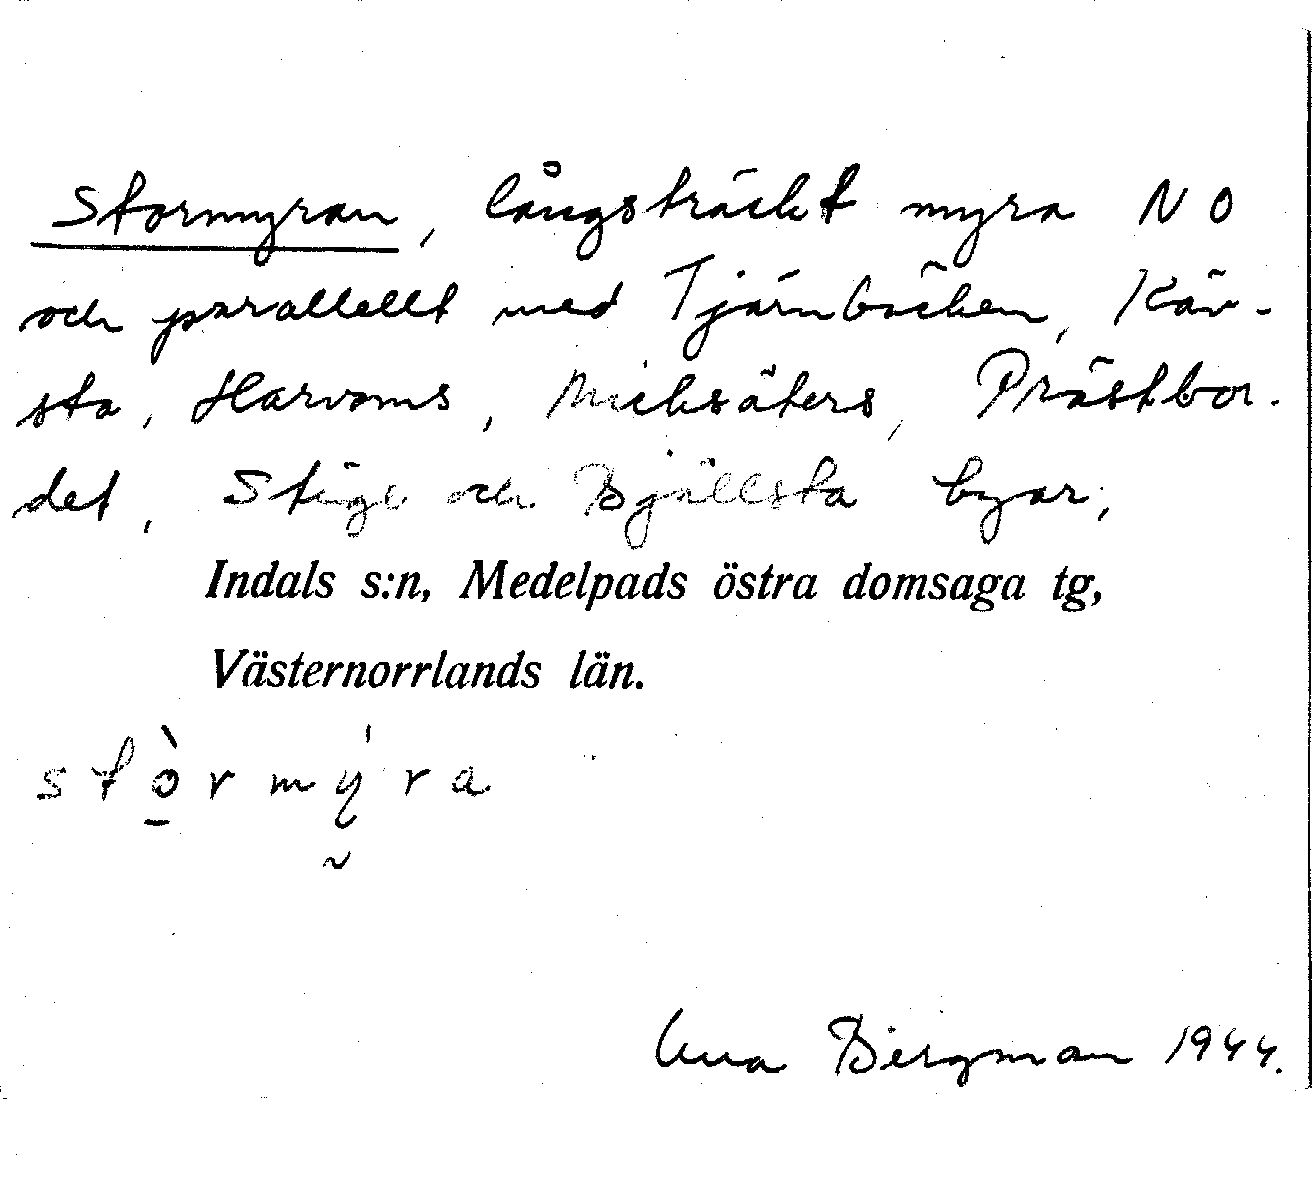 Stormyran, långsträckt myra NO
och parallellt med Tjärnbäcken, Käv-
sta, Harvoms, Micksäters, Prästbor-
det, Stige och Bjällsta byar,
Indals s:n, Medelpads östra domsaga tg,
Västernorrlands län.
stò̠rmý̰ra
Bergman 1944.